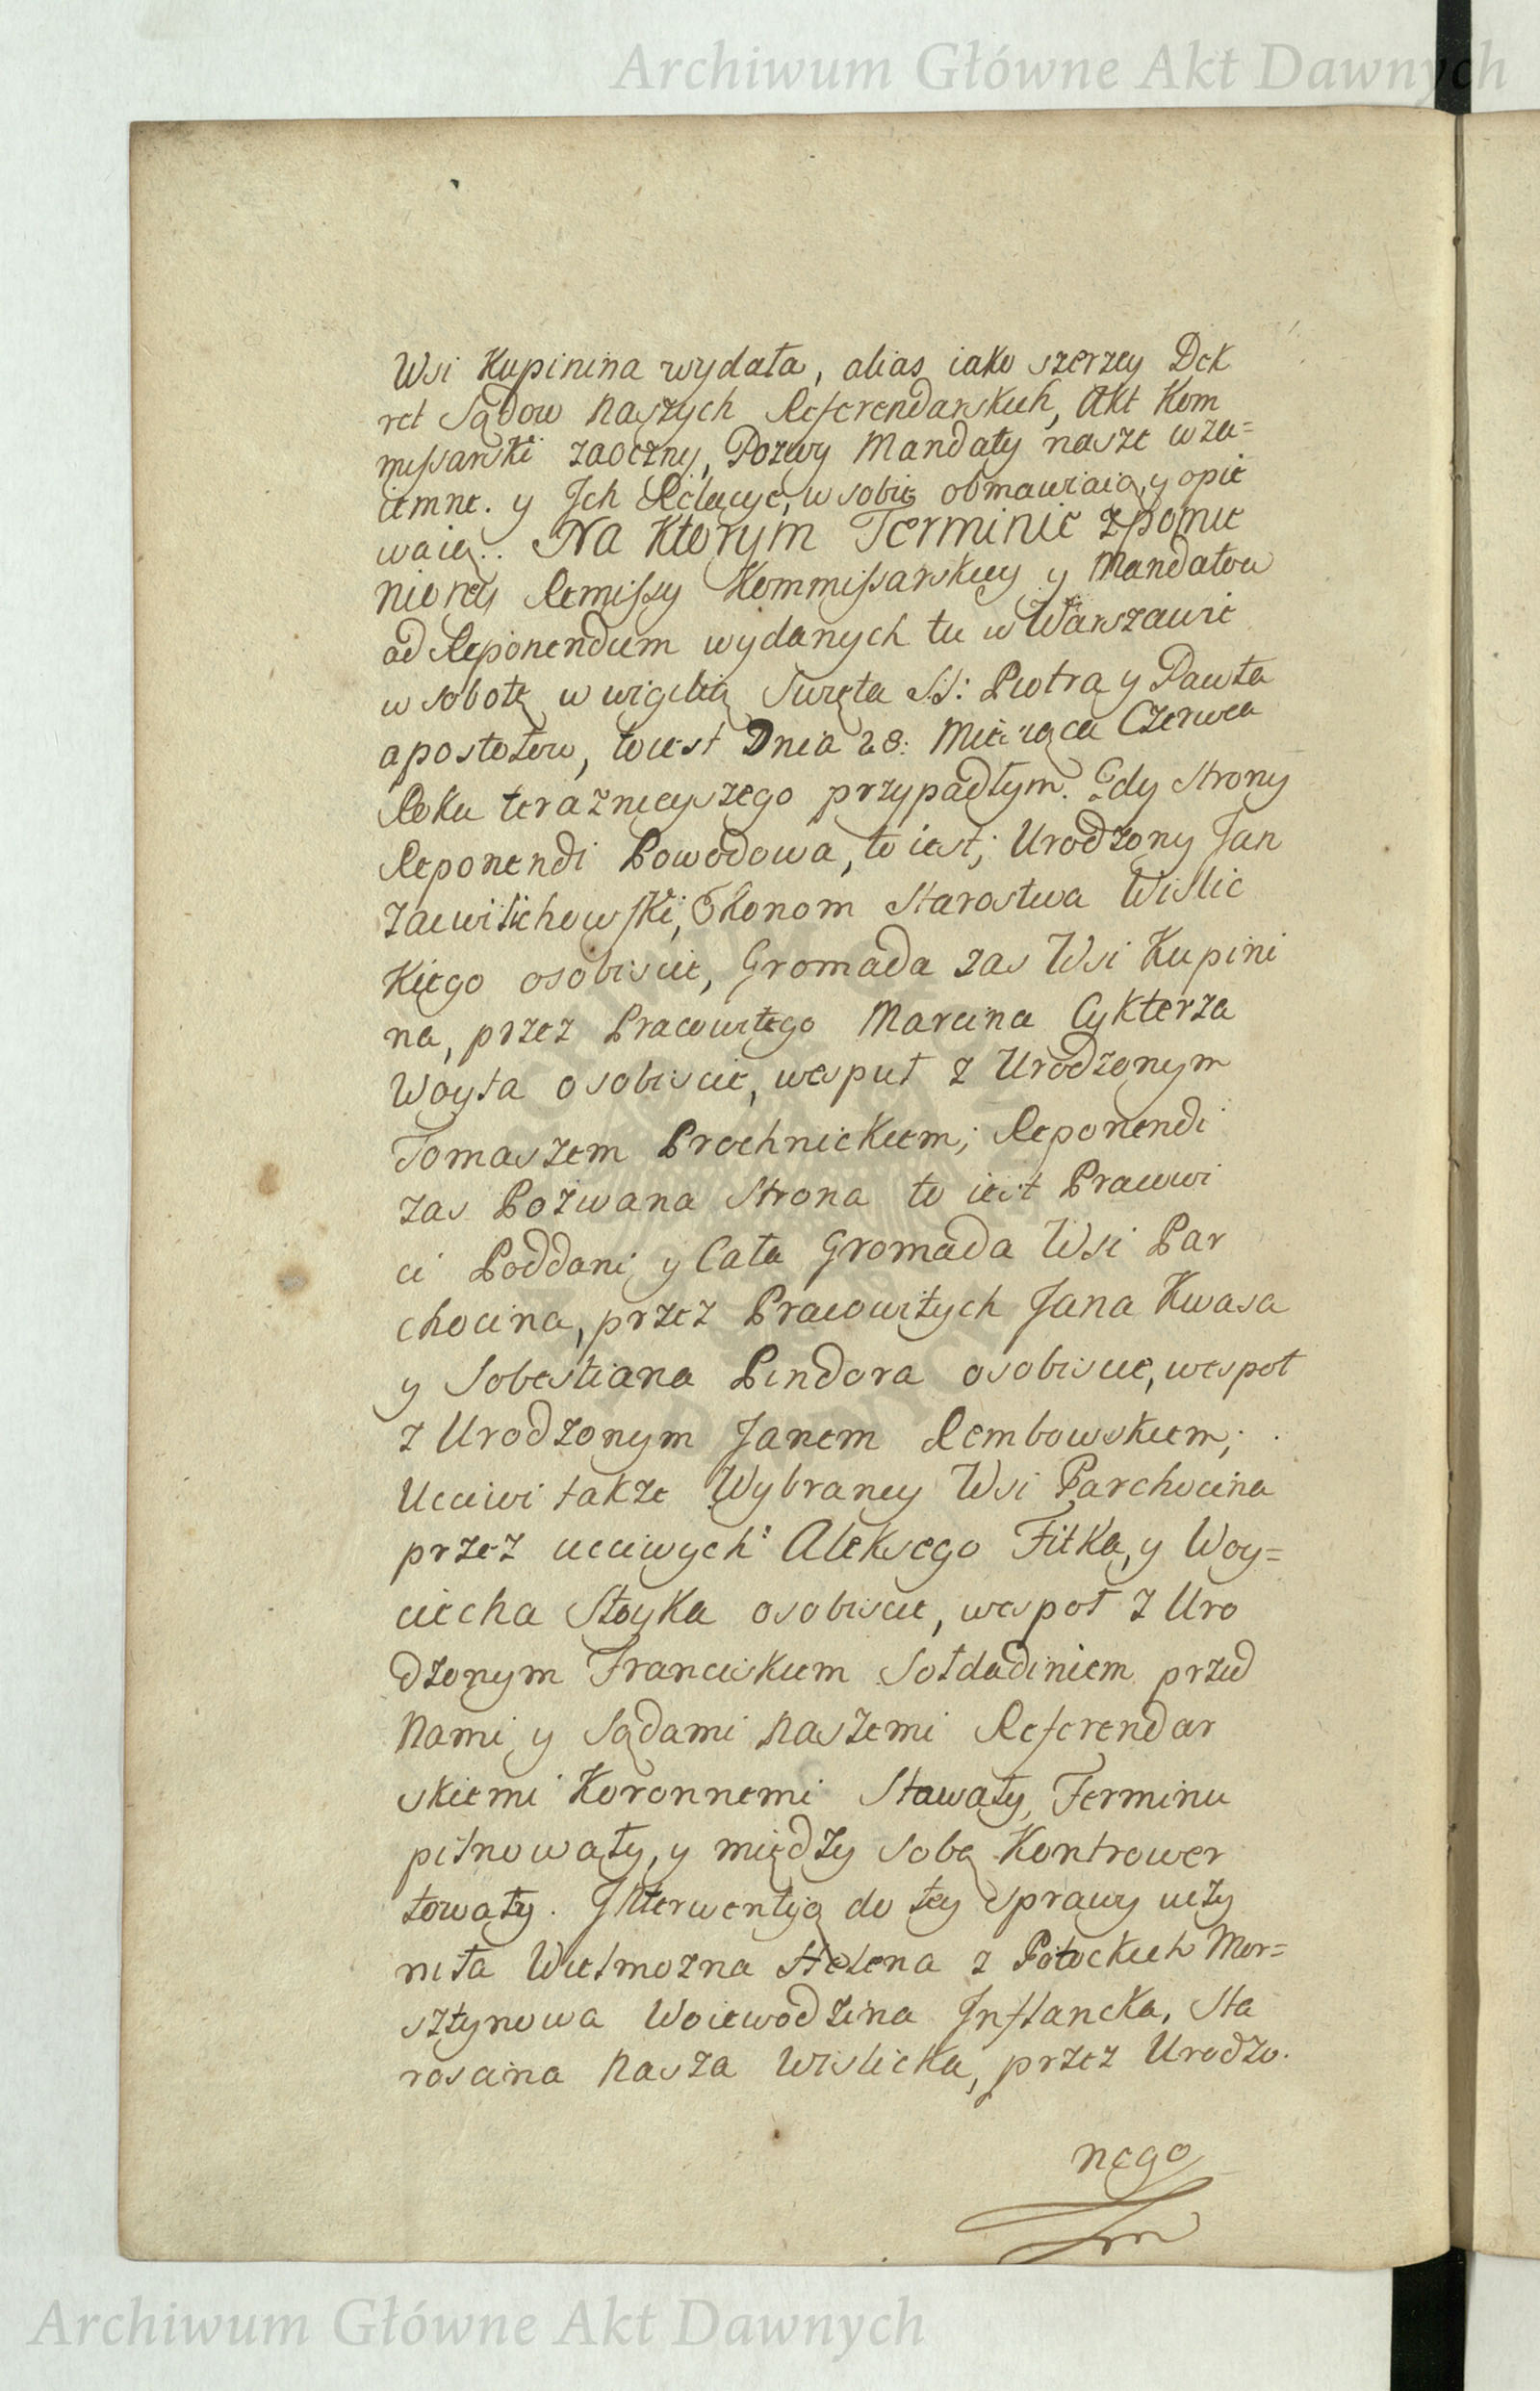 Archiwum Główne Akt Dawnych
Wsi Kupinina wydała, alias iako szerzey Dek
ret Sądow naszych Referendarskich, Akt Kom
missarski zaoczny, Pozwy Mandaty nasze wza=
iemne. y Ich Relacye, w sobie obmawiaią, y opie
waią. Na Ktorym Terminie zpomie
nioney Remissy Kommissarskiey y Mandatow
ad Reponendum wydanych tu w Warszawie
w sobotę w wigilią Swięta SS: Piotra y Pawła
apostołow, to iest Dnia 28: Miesiąca Czerwca
Roku teraznieyszego przypadłym. Gdy strony
Reponendi Powodowa, to iest; Urodzony Jan
Zaewilichowski, Ekonom Starostwa Wislic
kiego osobiscie, Gromada zas Wsi Kupini
na, przez Pracowitego Marcina Cykterza
Woyta osobiscie, wespuł z Urodzonym
Tomaszem Prochnickiem; Reponendi
zas Pozwana Strona to iest Pracowi
ci Poddani y Cała Gromada Wsi Par
chocina, przez Pracowitych Jana Kwasa
y Sobestiana Pindora osobiscie, wespoł
z Urodzonym Janem Rembowskiem;
Ucciwi takze Wybrancy Wsi Parchocina
przez ucciwych Aleksego Fitka, y Woy=
ciecha Stoyka osobiscie, wespoł z Uro
dzonym Franciskiem Sołdadiniem przed
Nami y Sądami Naszemi Referendar
skiemi Koronnemi Stawały, Terminu
pilnowały, y między sobą Kontrower
towały. Interwentyą do tey sprawy uczy
niła Wielmozna Helena z Potockich Mor=
sztynowa Woiewodzina Inflancka, Sta
roscina Nasza Wislicka, przez Urodzo.
nego
Archiwum Główne Akt Dawnych